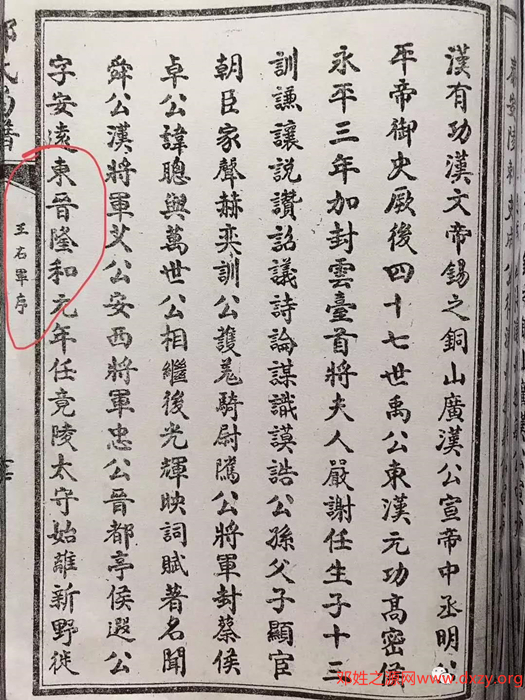 漢有功漢文帝錫之銅山廣漢公宣帝中丞明公
平帝御史厥後四十七世禹公東漢元功高密侯
永平三年加封雲臺首將夫人嚴謝任生子十三
訓謙讓説讚詔議詩論謀識謨誥公孫父子顯宦
朝臣家聲赫奕訓公護羗騎尉隲公將軍封蔡侯
卓公諱聰與萬世公相繼後光輝映詞賦著名聞
舜公漢將軍艾公安西將軍忠公晉都亭侯遐公
字安遠東晉隆和元年任竟陵太守始離新野徙
王右軍序
邓姓之源网www.dxzy.org